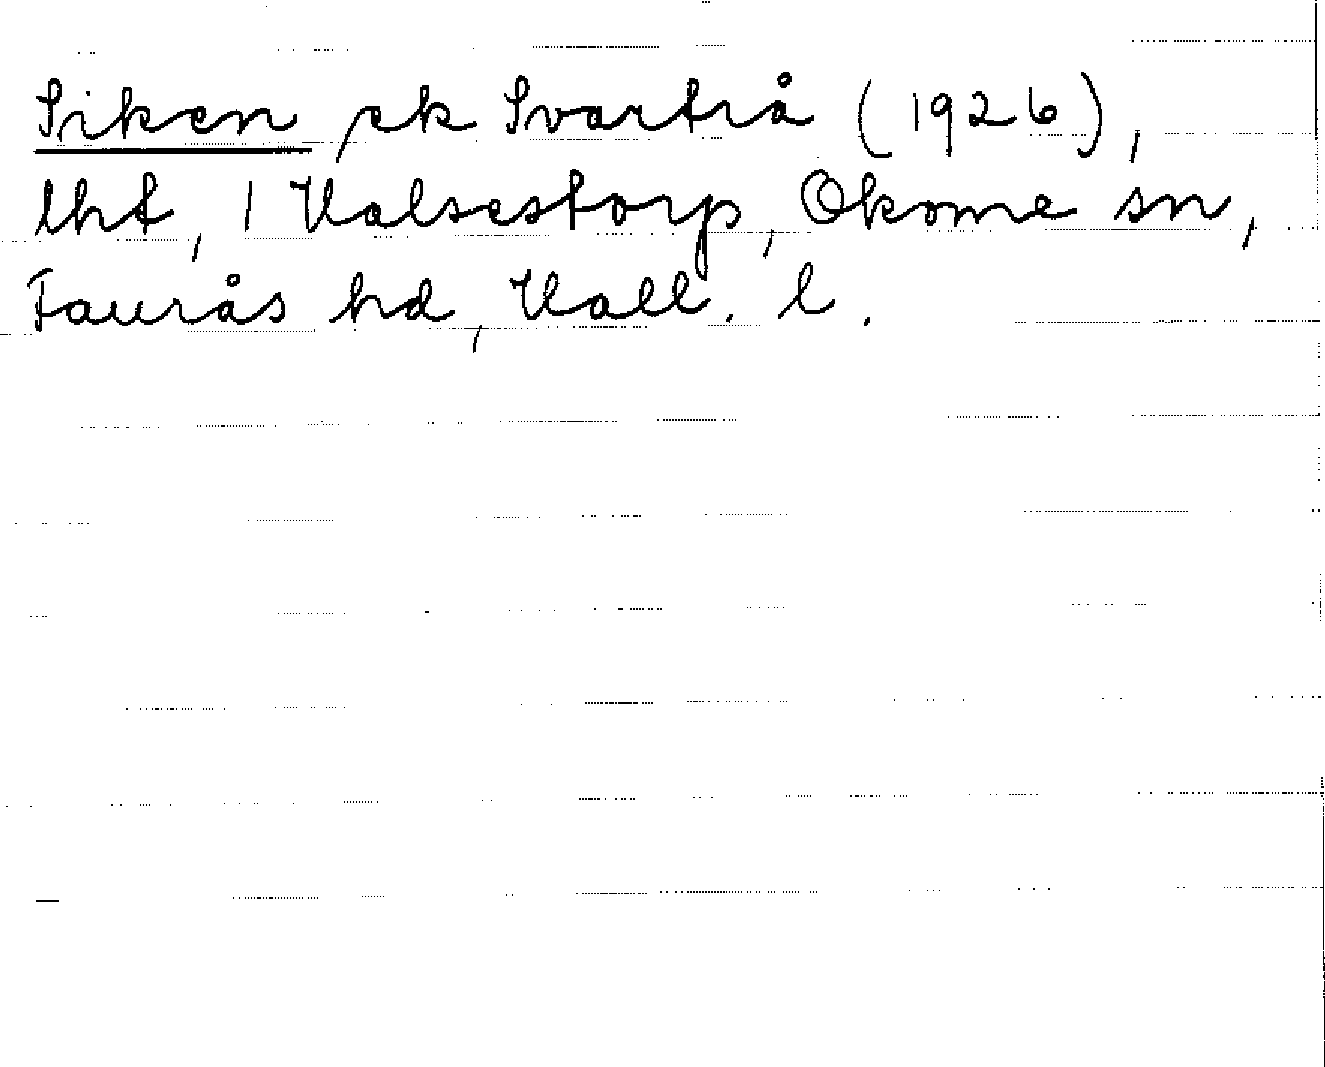 Siken ek Svartrå (1926),
lht, 1 Valsestorp, Okome sn,
Faurås hd, Hall. l.